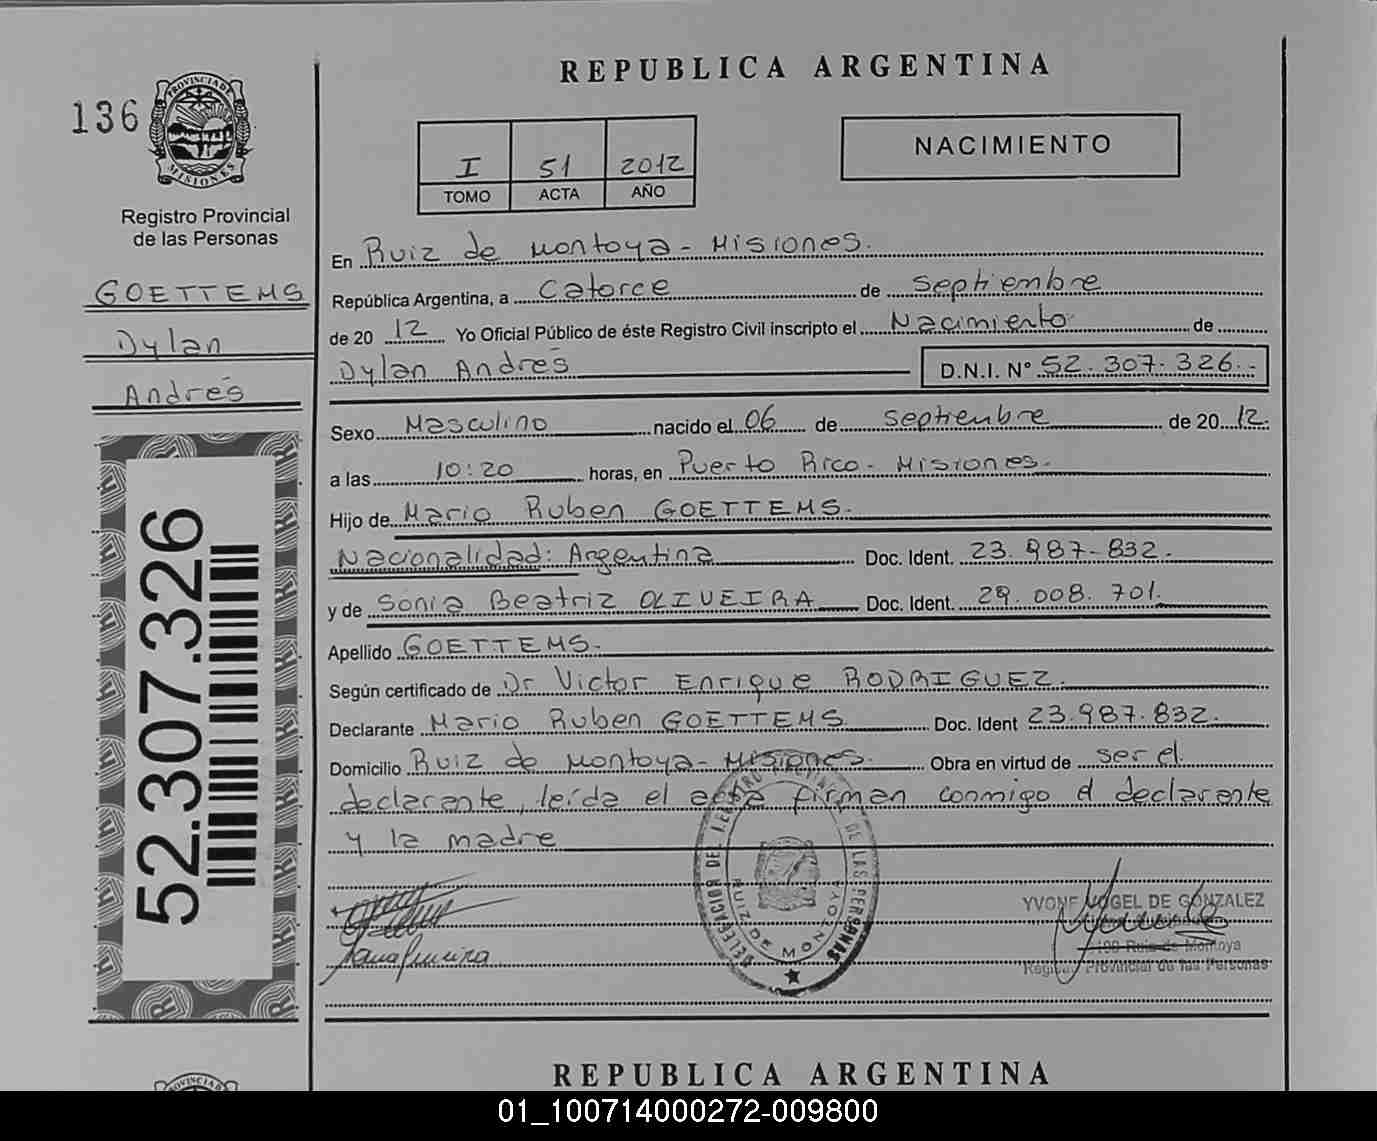 REPUBLICA ARGENTINA
136
PROVINCIA DE MISIONES
Registro Provincial
de las Personas
GOETTEMS
Dylan
Andrés
52.307.326
I 51 2012
TOMO ACTA AÑO
NACIMIENTO
En Ruiz de Montoya - Misiones.
República Argentina, a Catorce de Septiembre
de 20 12 Yo Oficial Público de éste Registro Civil inscripto el Nacimiento de
Dylan Andrés D.N.I. N° 52.307.326.-
Sexo Masculino nacido el 06 de Septiembre de 20 12.
a las 10:20 horas, en Puerto Rico - Misiones.
Hijo de Mario Ruben GOETTEMS.
Nacionalidad: Argentina Doc. Ident. 23.987-832.
y de Sonia Beatriz OLIVEIRA Doc. Ident. 29.008.701.
Apellido GOETTEMS.
Según certificado de Dr Victor Enrique RODRIGUEZ.
Declarante Mario Ruben GOETTEMS Doc. Ident 23.987.832.
Domicilio Ruiz de Montoya - Misiones. Obra en virtud de ser el
declarante, leída el acta firman conmigo el declarante
y la madre
DELEGACION DEL REGISTRO PROVINCIAL DE LAS PERSONAS
RUIZ DE MONTOYA
YVONE VOGEL DE GONZALEZ
Ruiz de Montoya
Registro Provincial de las Personas
REPUBLICA ARGENTINA
01_100714000272-009800